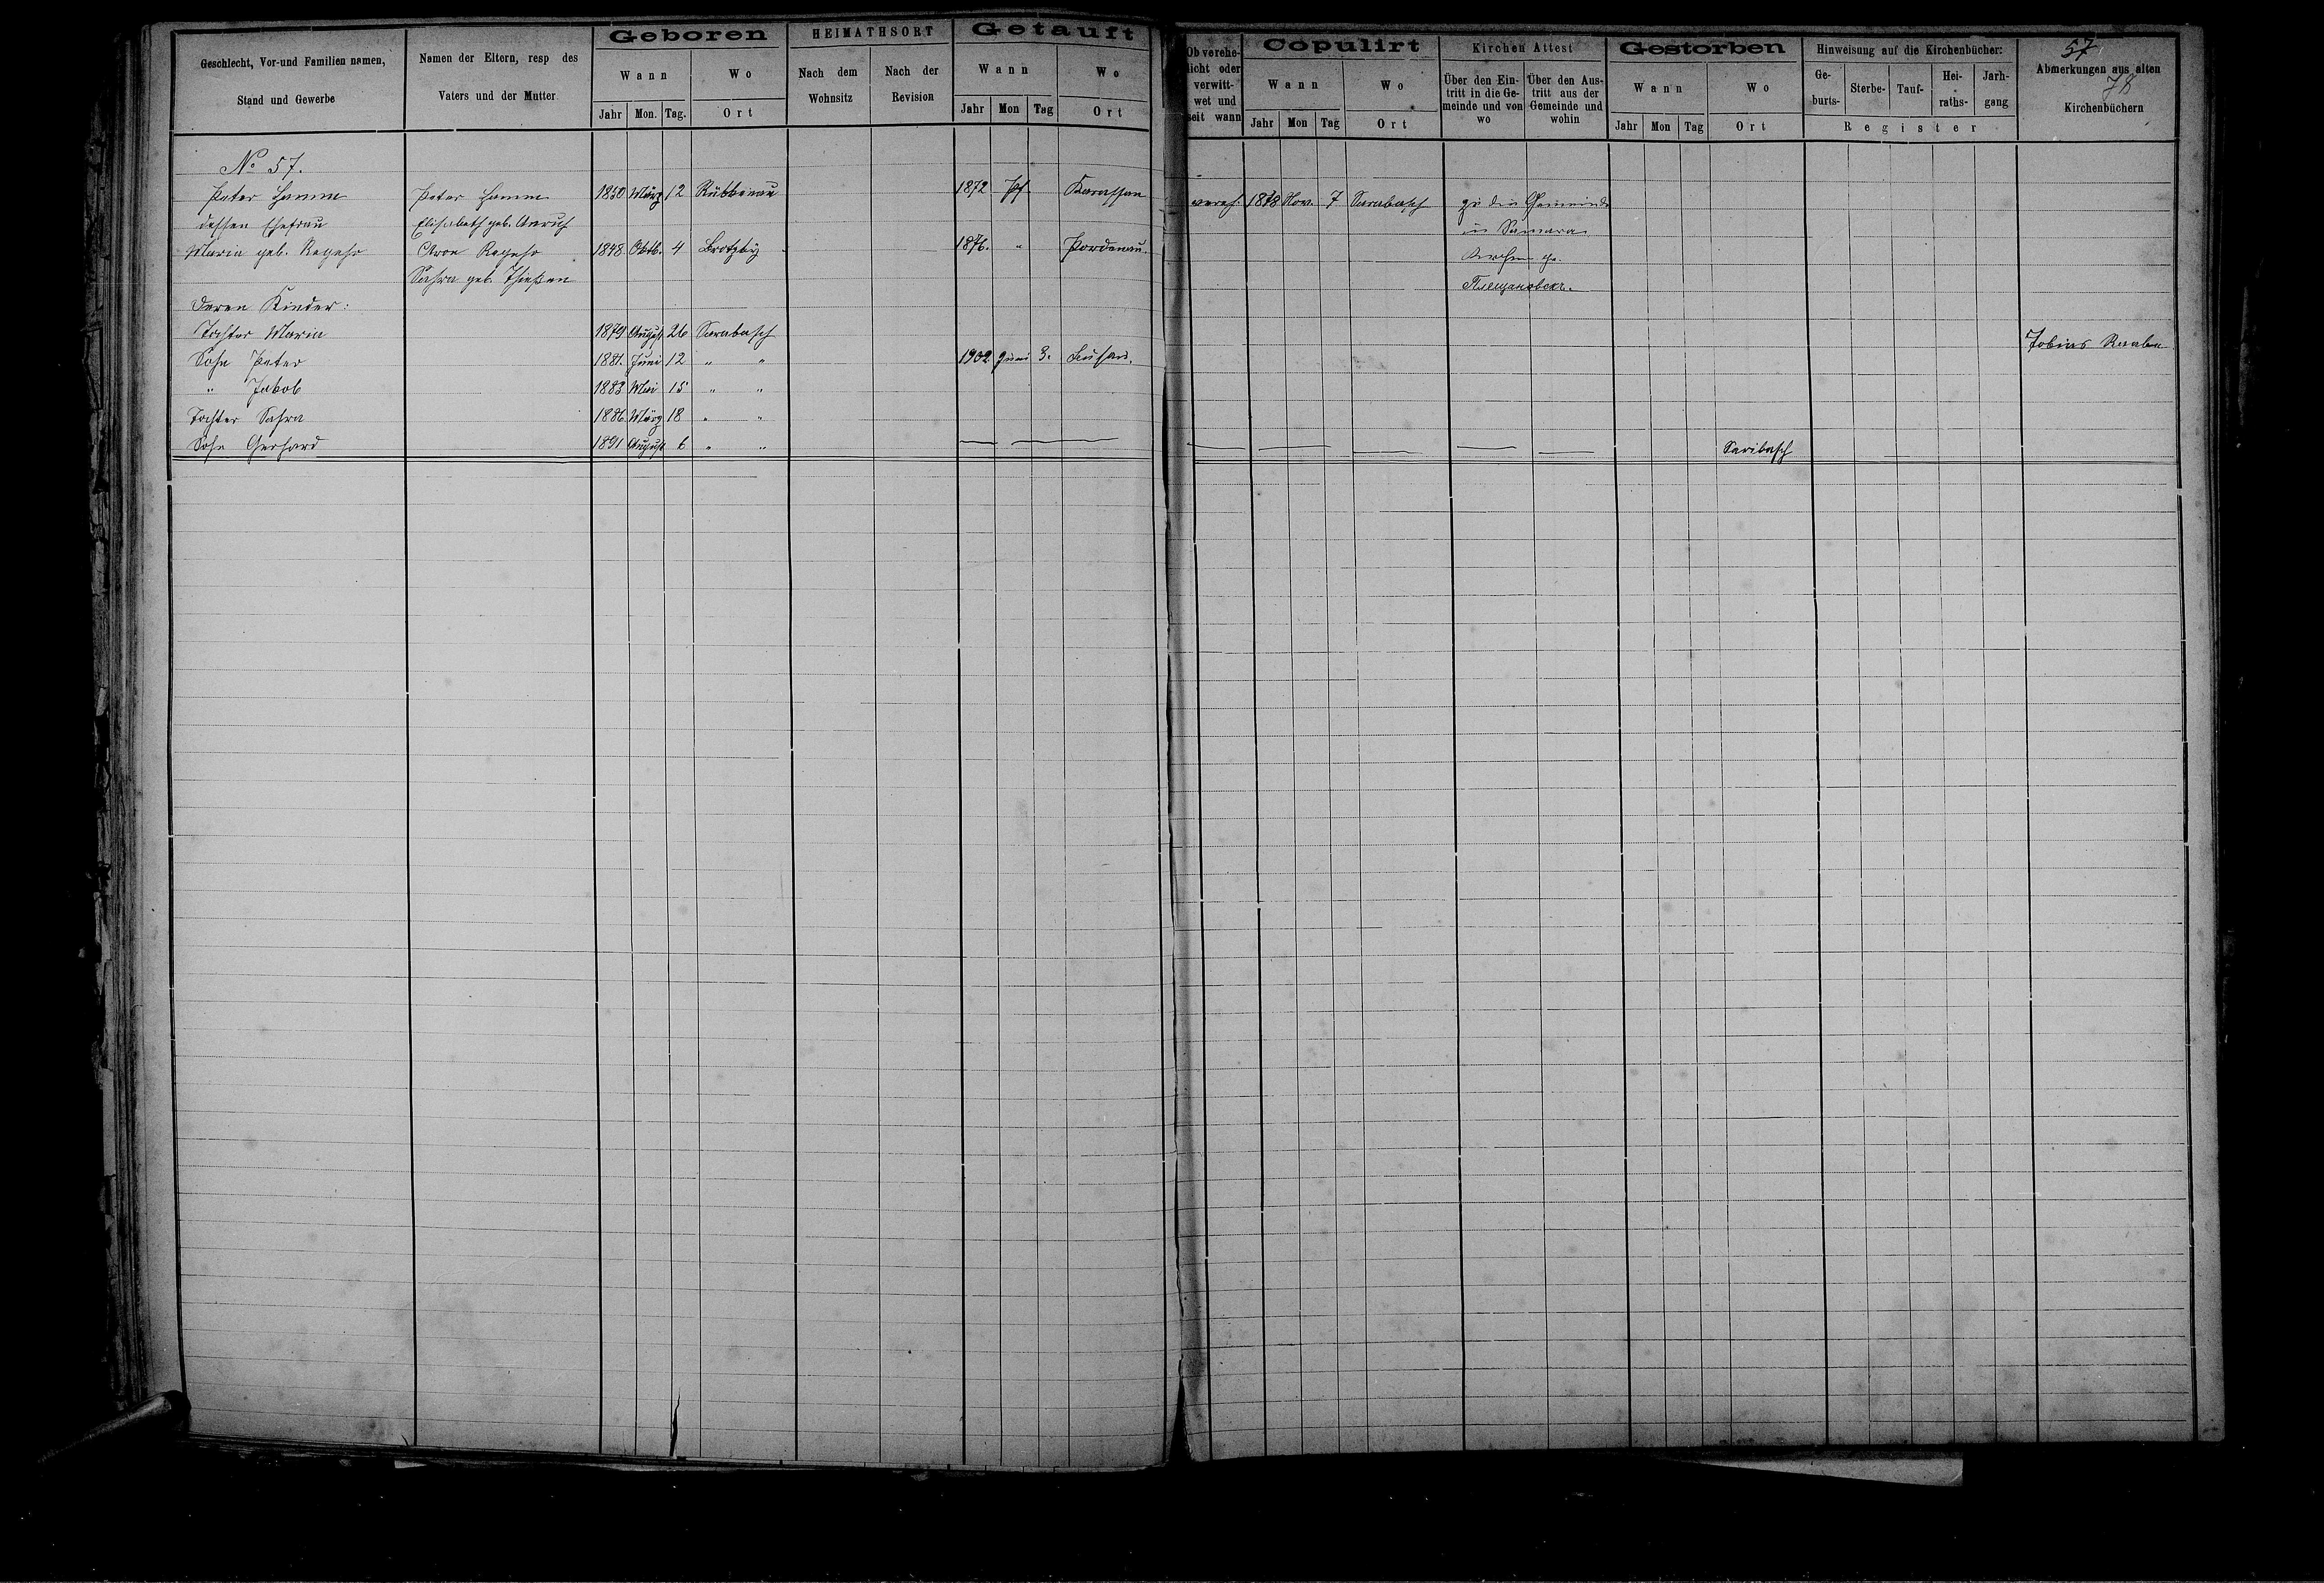 Geboren HEIMATHSORT Getauft
Geschlecht, Vor-und Familien namen, Stand und Gewerbe
Namen der Eltern, resp des Vaters und der Mutter
Wann Wo Nach dem Wohnsitz Nach der Revision Wann Wo
Jahr Mon. Tag. Ort Jahr Mon Tag Ort
Ob verehelicht oder verwittwet und seit wann
Copulirt Kirchen Attest Gestorben Hinweisung auf die Kirchenbücher: 57
Wann Wo Über den Eintritt in die Gemeinde und von wo Über den Austritt aus der Gemeinde und wohin Wann Wo Geburts- Sterbe- Tauf- Heiraths- Jarhgang Abmerkungen aus alten Kirchenbüchern
78
Jahr Mon Tag Ort Jahr Mon Tag Ort Register
No 57.
Peter Hamm Peter Hamm 1850 März 12 Rükkenau 1872 Pf. Karassan vereh. 1878 Nov. 7 Sarabasch zu den Gemeinde
dessen Ehefrau Elisabeth geb. Unruh in Samara
Maria geb. Regehr Aron Regehr 1848 Oktb. 4 1876. " Pordenau.
Sahra geb. Thießen
Deren Kinder:
Tochter Maria 1879 August 26 Sarabasch Tobias Raabe
Sohn Peter 1881. Juni 12 " " 1902 Juni 3.
" Jakob 1883 Mai 15 " "
Tochter Sahra 1886 März 18 " "
Sohn Gerhard 1891 August 6 " " Saribasch